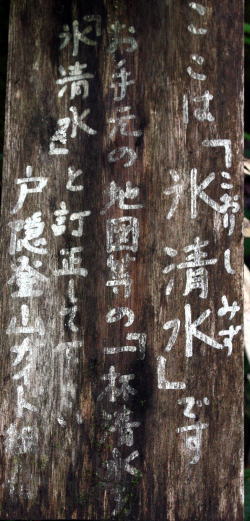 ここは「氷清水」です
こおりしみず
お手元の地図等の「一杯清水」を
「氷清水」と訂正して下さい
戸隠登山ガイド組